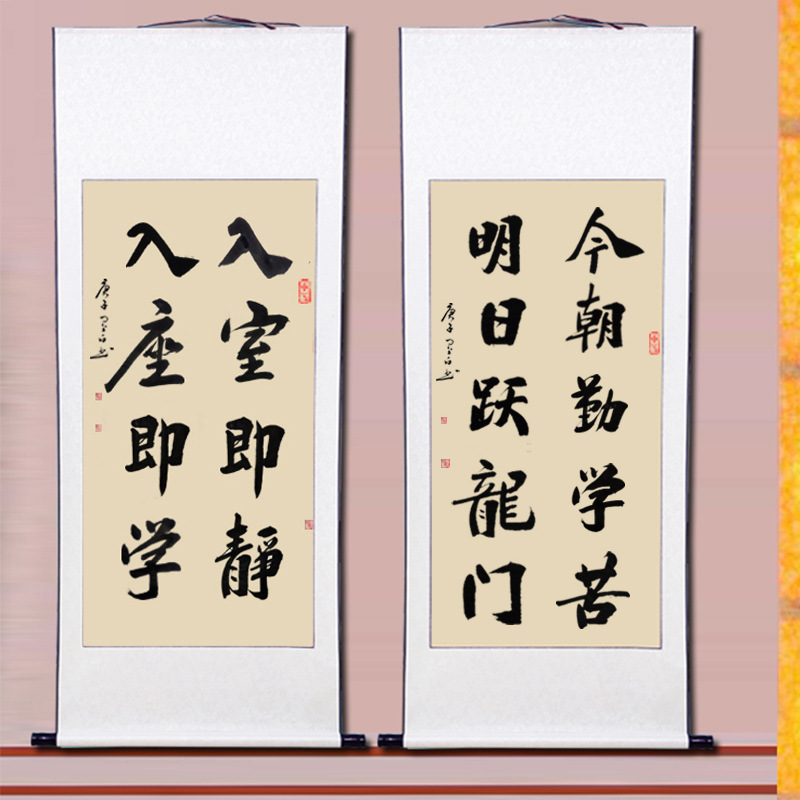 今朝勤学苦
明日跃龍门
庚子
入室即静
入座即学
庚子